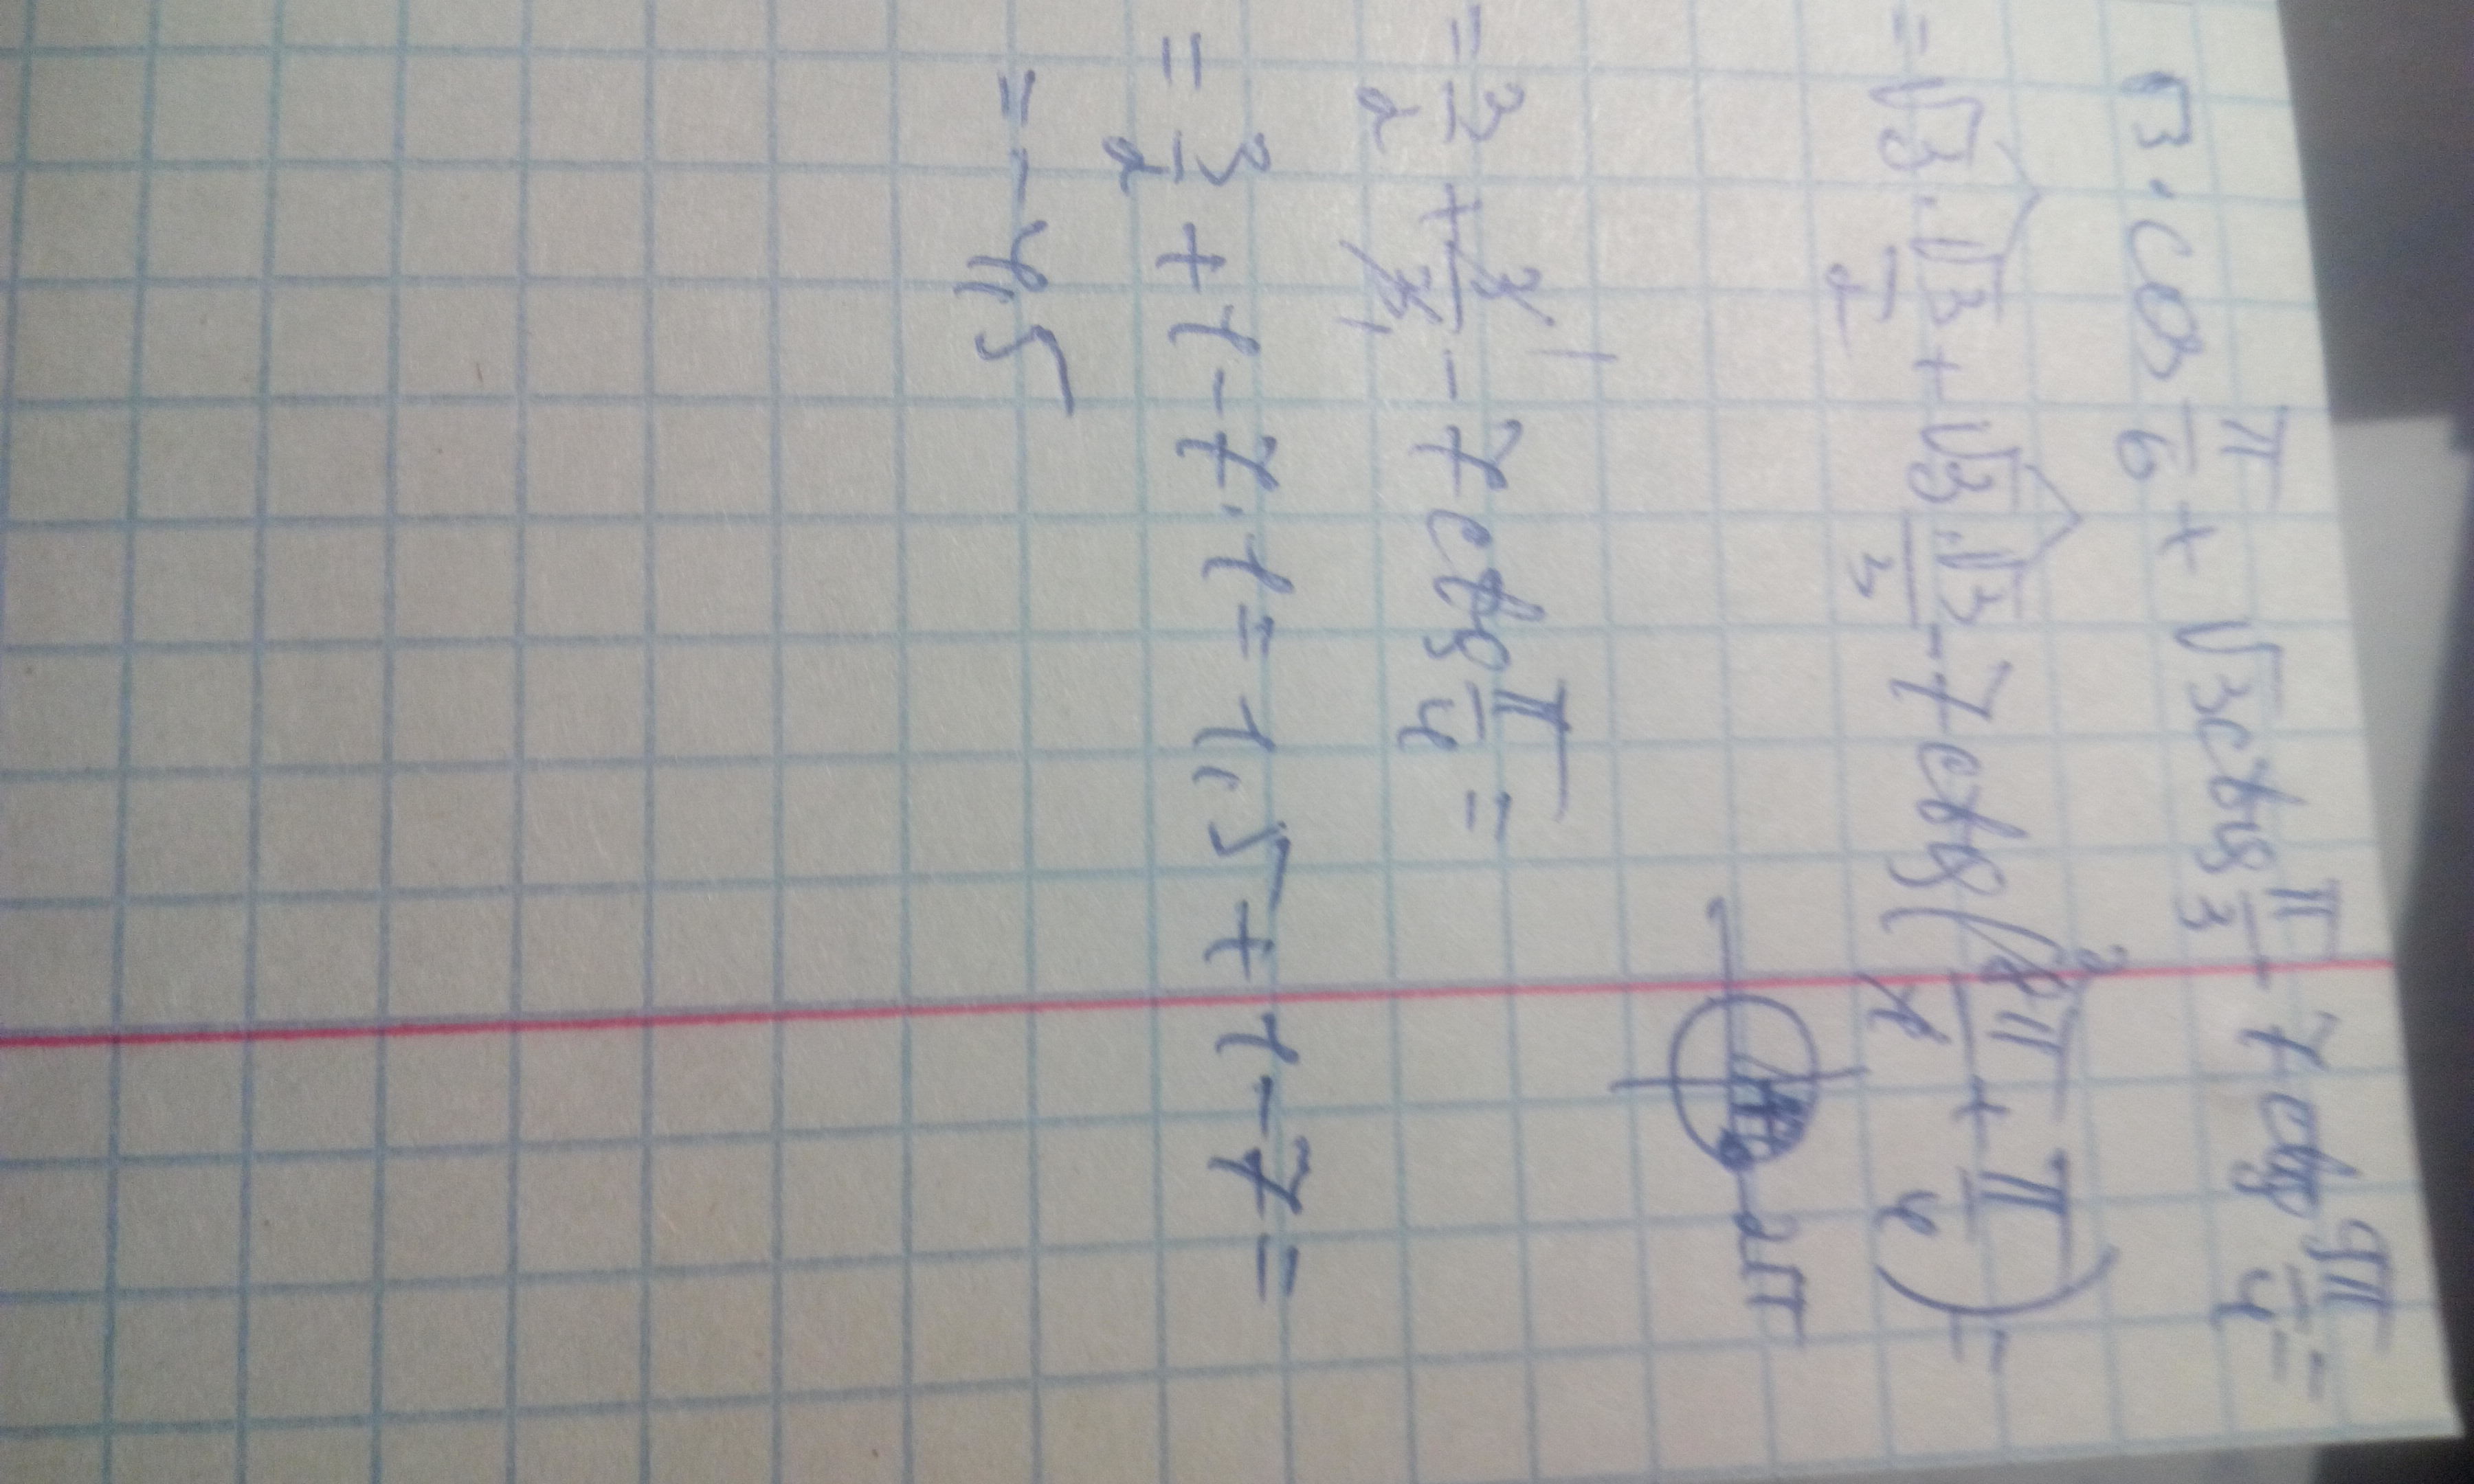 √3 · cos π/6 + √3 ctg π/3 - 7 ctg 9π/4 =
= √3 · √3/2 + √3 · √3/3 - 7 ctg (8π/4 + π/4) =
2π
= 3/2 + 3/3 - 7 ctg π/4 =
= 3/2 + 1 - 7 · 1 = 1,5 + 1 - 7 =
= - 4,5